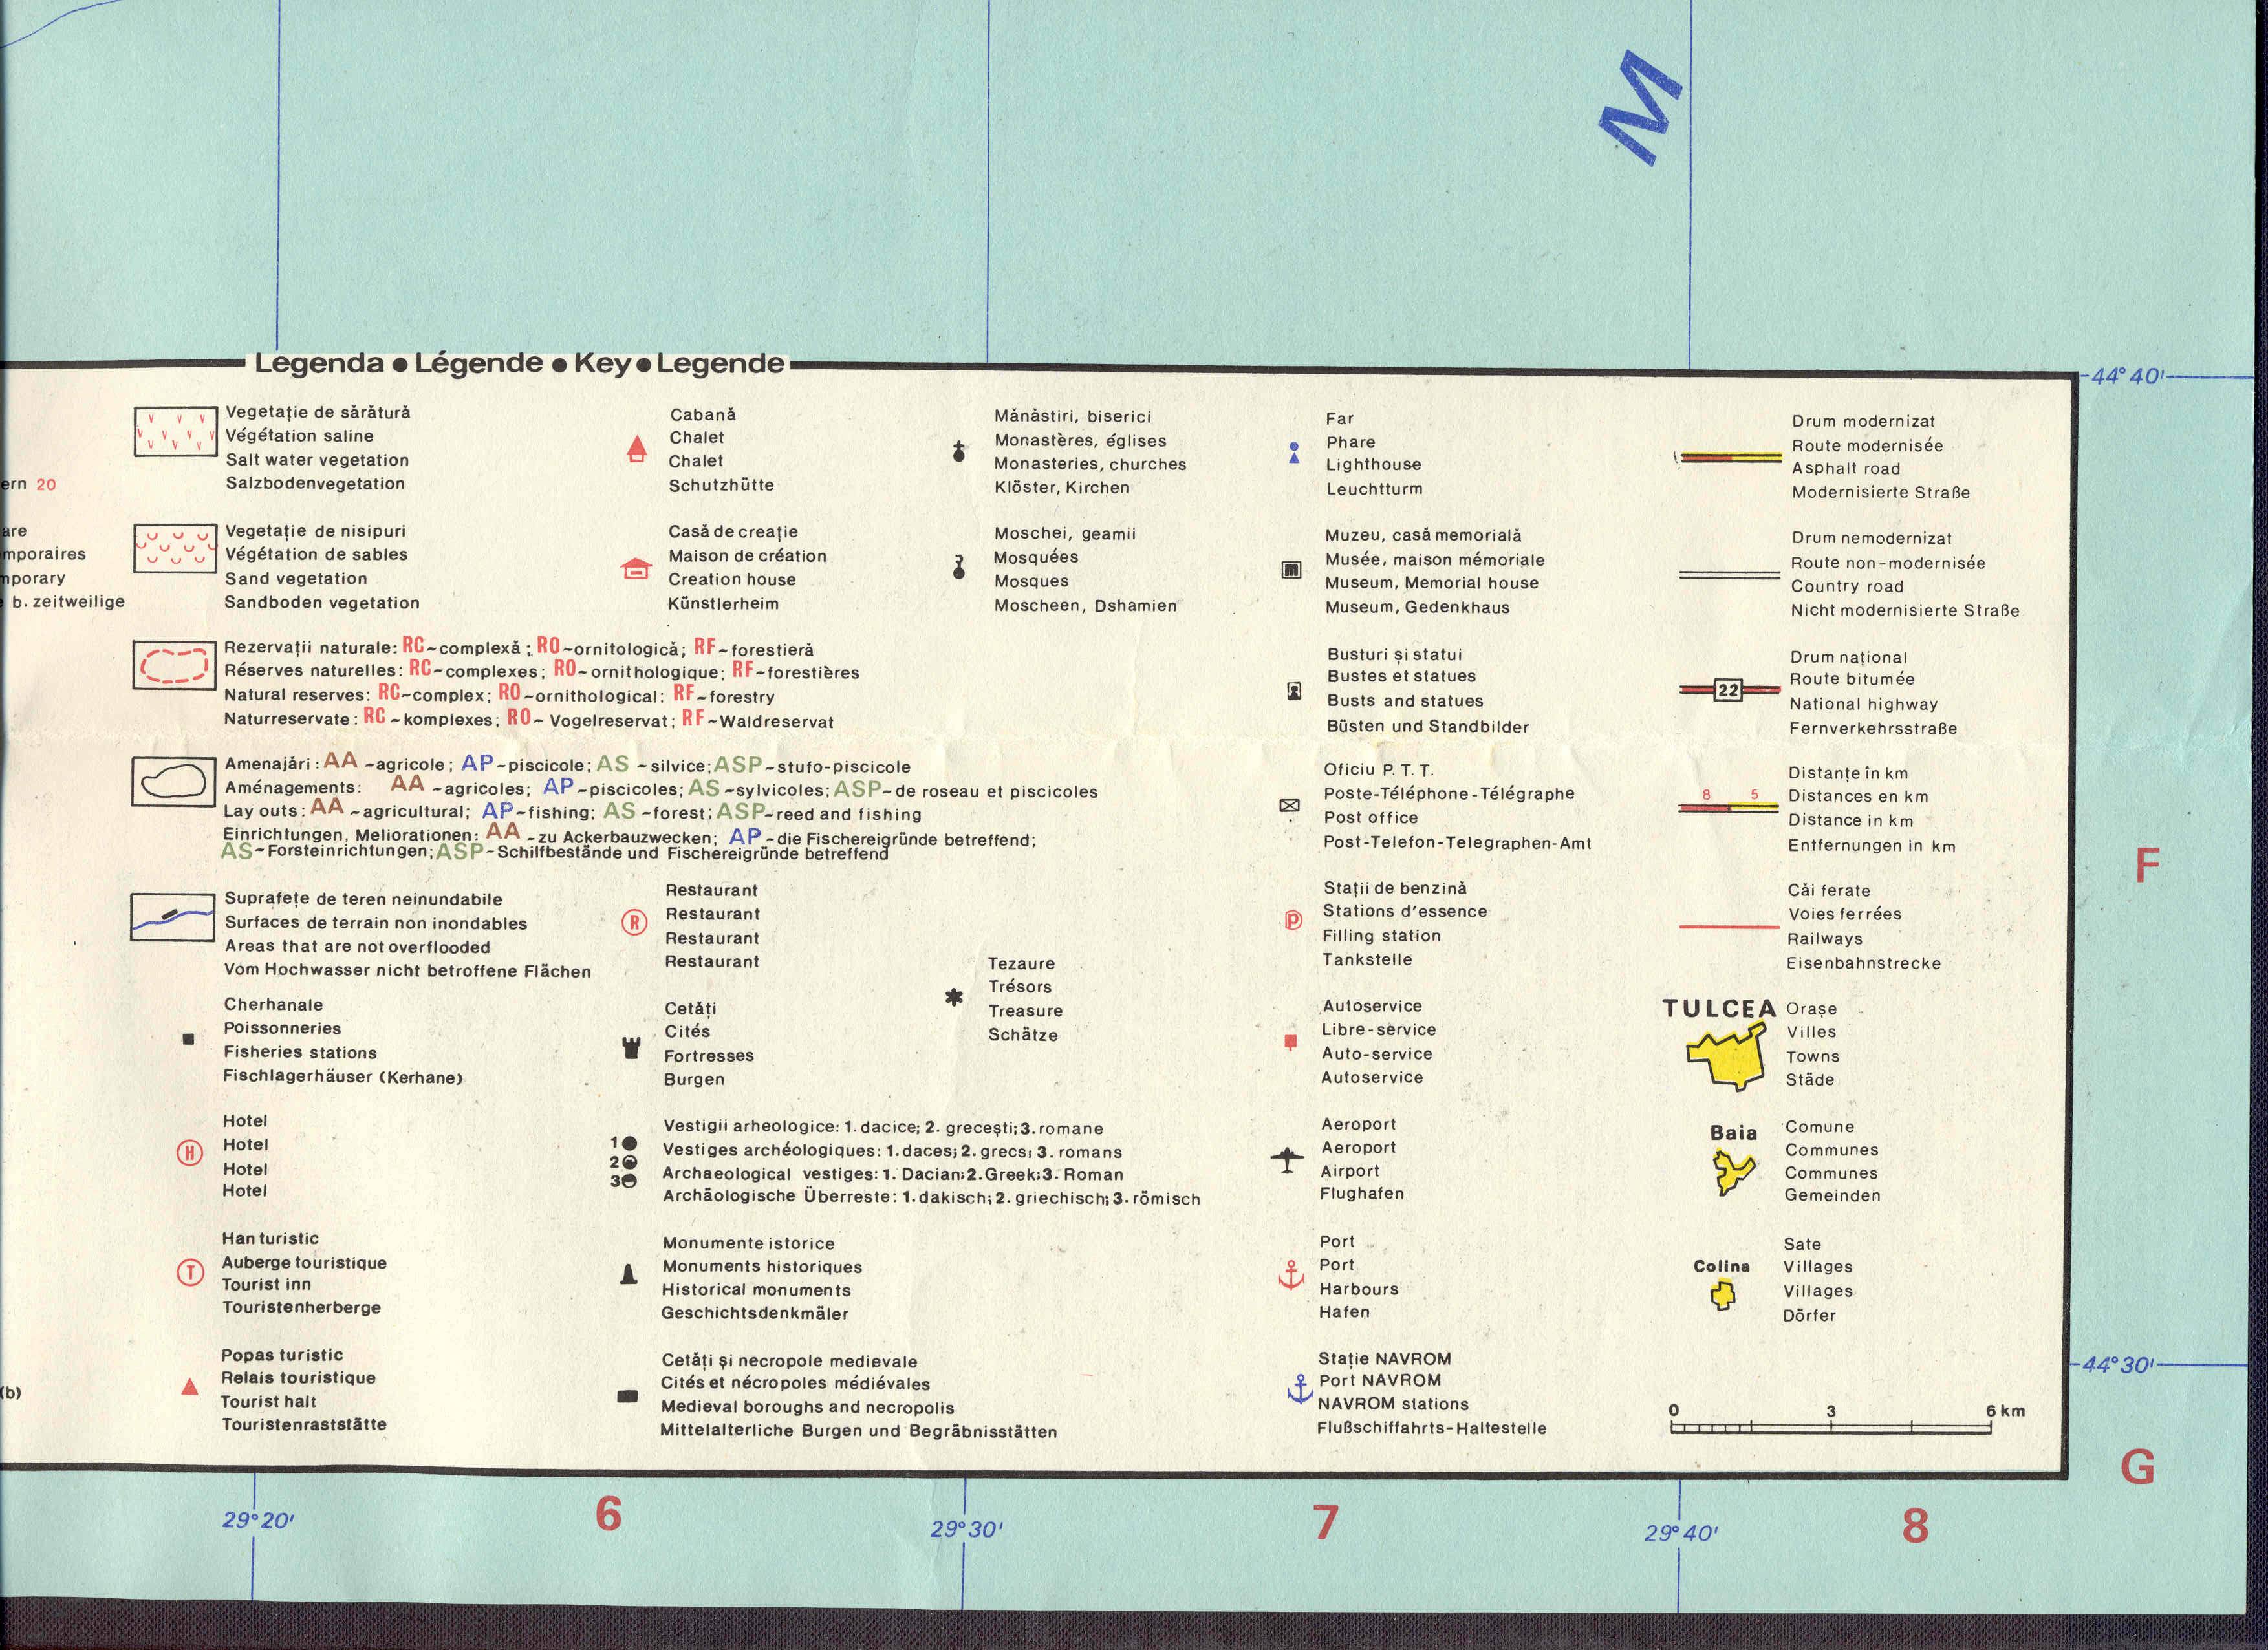 M
Legenda • Légende • Key • Legende
44°40'
ern 20
are
mporaires
mporary
b. zeitweilige
(b)
Vegetație de sărătură
Végétation saline
Salt water vegetation
Salzbodenvegetation
Vegetație de nisipuri
Végétation de sables
Sand vegetation
Sandboden vegetation
Rezervații naturale: RC~complexă; RO~ornitologică; RF~forestieră
Réserves naturelles: RC~complexes; RO~ornithologique; RF~forestières
Natural reserves: RC~complex; RO~ornithological; RF~forestry
Naturreservate: RC~komplexes; RO~Vogelreservat; RF~Waldreservat
Amenajări: AA~agricole; AP~piscicole; AS~silvice; ASP~stufo-piscicole
Aménagements: AA~agricoles; AP~piscicoles; AS~sylvicoles; ASP~de roseau et piscicoles
Lay outs: AA~agricultural; AP~fishing; AS~forest; ASP~reed and fishing
Einrichtungen, Meliorationen: AA~zu Ackerbauzwecken; AP~die Fischereigründe betreffend;
AS~Forsteinrichtungen; ASP~Schilfbestände und Fischereigründe betreffend
Suprafețe de teren neinundabile
Surfaces de terrain non inondables
Areas that are not overflooded
Vom Hochwasser nicht betroffene Flächen
Cherhanale
Poissonneries
Fisheries stations
Fischlagerhäuser (Kerhane)
H
Hotel
Hotel
Hotel
Hotel
T
Han turistic
Auberge touristique
Tourist inn
Touristenherberge
Popas turistic
Relais touristique
Tourist halt
Touristenraststätte
Cabană
Chalet
Chalet
Schutzhütte
Casă de creație
Maison de création
Creation house
Künstlerheim
R
Restaurant
Restaurant
Restaurant
Restaurant
Cetăți
Cités
Fortresses
Burgen
1
2
3
Vestigii arheologice: 1. dacice; 2. grecești; 3. romane
Vestiges archéologiques: 1. daces; 2. grecs; 3. romans
Archaeological vestiges: 1. Dacian; 2. Greek; 3. Roman
Archäologische Überreste: 1. dakisch; 2. griechisch; 3. römisch
Monumente istorice
Monuments historiques
Historical monuments
Geschichtsdenkmäler
Cetăți și necropole medievale
Cités et nécropoles médiévales
Medieval boroughs and necropolis
Mittelalterliche Burgen und Begräbnisstätten
Mănăstiri, biserici
Monastères, églises
Monasteries, churches
Klöster, Kirchen
Moschei, geamii
Mosquées
Mosques
Moscheen, Dshamien
Tezaure
Trésors
Treasure
Schätze
Far
Phare
Lighthouse
Leuchtturm
m
Muzeu, casă memorială
Musée, maison mémoriale
Museum, Memorial house
Museum, Gedenkhaus
Busturi și statui
Bustes et statues
Busts and statues
Büsten und Standbilder
Oficiu P. T. T.
Poste-Téléphone-Télégraphe
Post office
Post-Telefon-Telegraphen-Amt
P
Stații de benzină
Stations d'essence
Filling station
Tankstelle
Autoservice
Libre-service
Auto-service
Autoservice
Aeroport
Aeroport
Airport
Flughafen
Port
Port
Harbours
Hafen
Stație NAVROM
Port NAVROM
NAVROM stations
Flußschiffahrts-Haltestelle
Drum modernizat
Route modernisée
Asphalt road
Modernisierte Straße
Drum nemodernizat
Route non-modernisée
Country road
Nicht modernisierte Straße
22
Drum național
Route bitumée
National highway
Fernverkehrsstraße
8 5
Distanțe în km
Distances en km
Distance in km
Entfernungen in km
Căi ferate
Voies ferrées
Railways
Eisenbahnstrecke
TULCEA
Orașe
Villes
Towns
Städe
Baia
Comune
Communes
Communes
Gemeinden
Colina
Sate
Villages
Villages
Dörfer
0 3 6 km
F
44°30'
G
29°20'
6
29°30'
7
29°40'
8